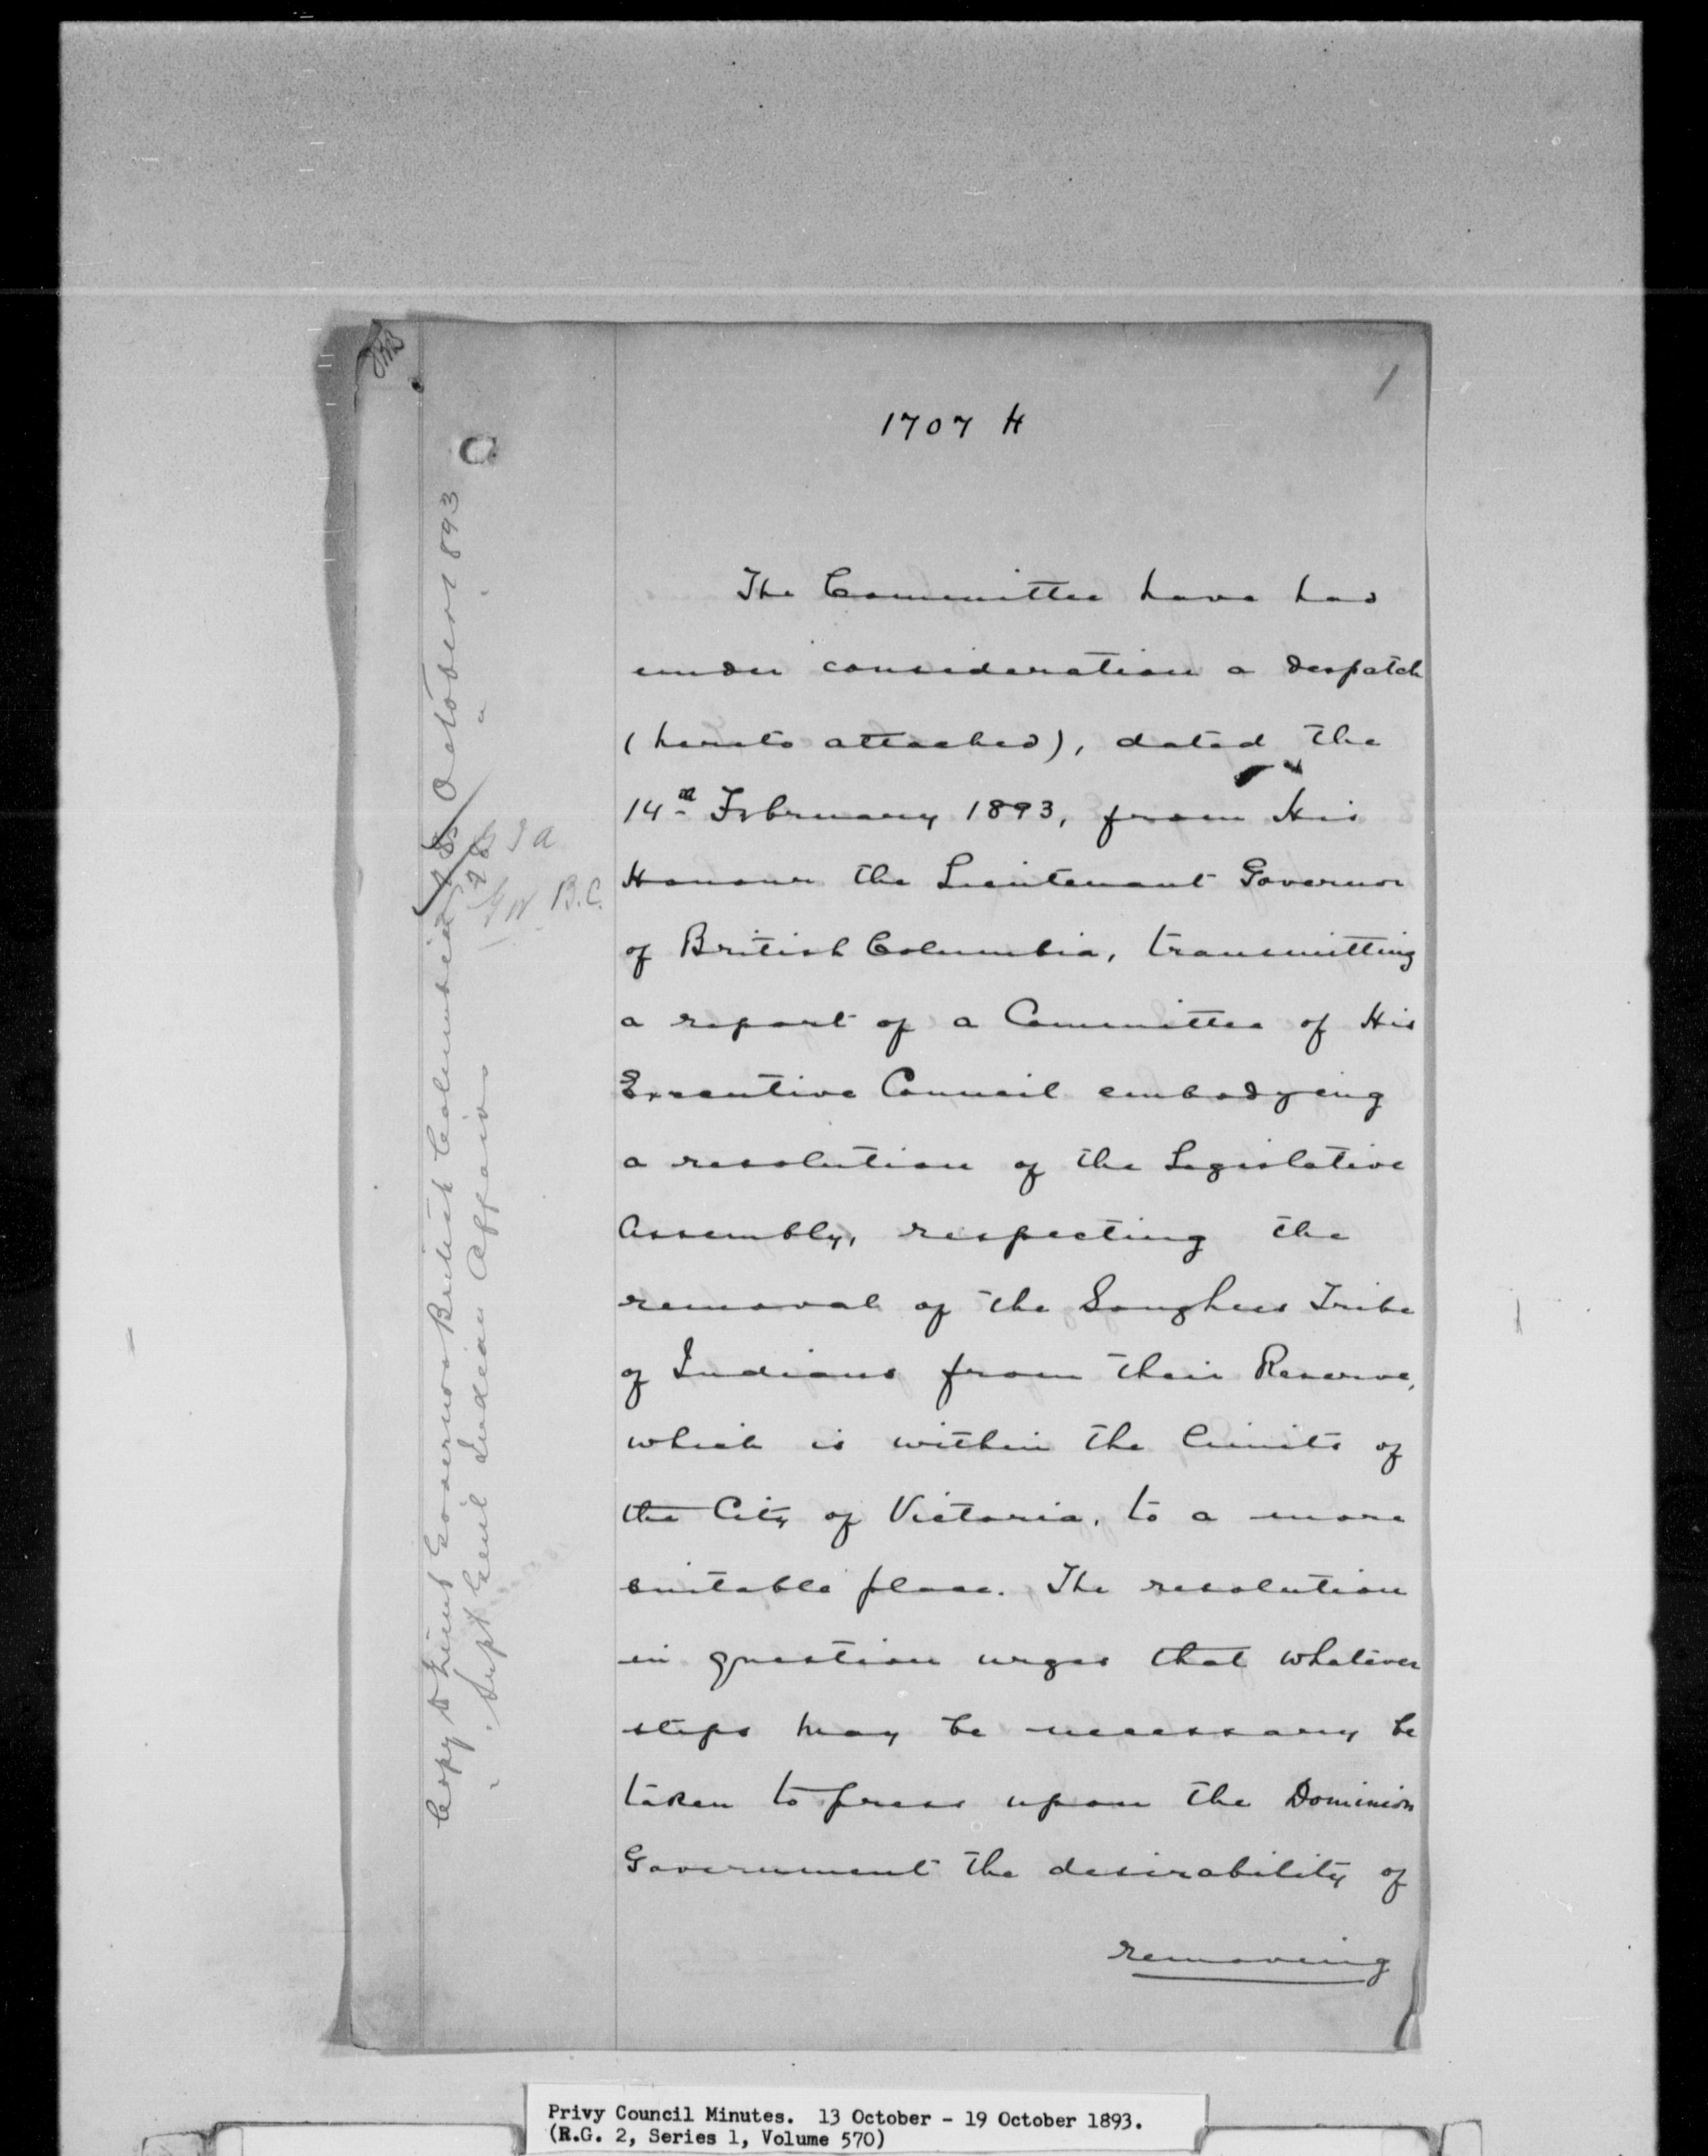 1
1707 H
The Committee have had
under consideration a despatch
(hereto attached), dated the
14th February 1893, from His
Honour the Lieutenant Governor
of British Columbia, transmitting
a report of a Committee of His
Executive Council embodying
a resolution of the Legislative
Assembly, respecting the
removal of the Songhees Tribe
of Indians from their Reserve,
which is within the limits of
the City of Victoria, to a more
suitable place. The resolution
in question urges that whatever
steps may be necessary be
taken to press upon the Dominion
Government the desirability of
removing
Copy to Lieut Governor British Columbia 18 October 1893
" Supt Genl Indian Affairs
B.C.
Privy Council Minutes. 13 October - 19 October 1893.
(R.G. 2, Series 1, Volume 570)